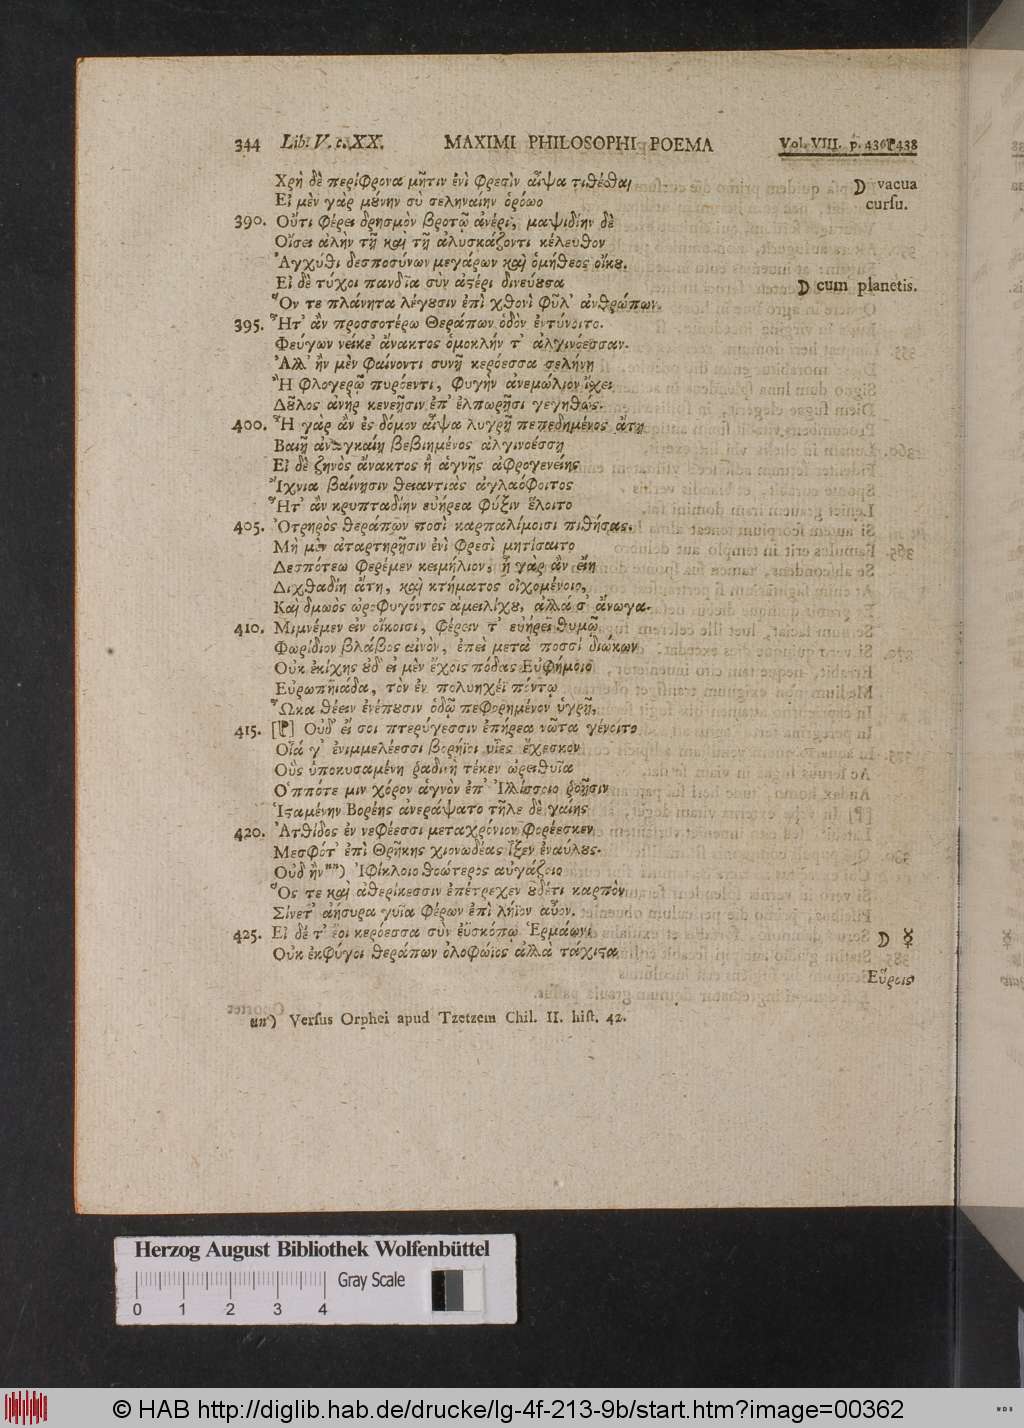 344 Lib. V. c. XX. MAXIMI PHILOSOPHI POEMA Vol. VIII. p. 436 ⁋ 438
Χρὴ δὲ περίφρονα μῆτιν ἐνὶ φρεσὶν αἶψα τιθέσθαι ☽ vacua
Εἰ μὲν γὰρ μούνην συ σεληναίην ὁρόωο cursu.
390. Οὔτι φέρει δρησμὸν βροτῷ ἀνέρι, μαψιδίην δὲ
Οἴσει ἀλὴν τῇ καὶ τῇ ἀλυσκάζοντι κέλευθον
Ἀγχόθι δεσποσύνων μεγάρων καὶ ὁμήθεος οἴκου.
Εἰ δὲ τύχοι πανδῖα σὺν ἀστέρι δινεύουσα ☽ cum planetis.
Ὅν τε πλάνητα λέγουσιν ἐπὶ χθονὶ φῦλ' ἀνθρώπων.
395. Ἦτ' ἂν προσσοτέρω θεράπων ὁδὸν ἐντύνοιτο.
Φεύγων νείκε' ἄνακτος ὁμοκλήν τ' ἀλγινόεσσαν.
Ἀλλ' ἢν μὲν φαίνοντι συνῇ κερόεσσα σελήνη
Ἢ φλογερῷ πυρόεντι, φυγὴν ἀνεμώλιον ἴχει
Δοῦλος ἀνὴρ κενεῇσιν ἐπ' ἐλπωρῇσι γεγηθώς.
400. Ἦ γὰρ ἂν ἐς δόμον αἶψα λυγρῇ πεπεδημένος ἄτῃ
Βαιῇ ἀναγκαίῃ βεβιημένος ἀλγινοέσσῃ
Εἰ δὲ ζηνὸς ἄνακτος ἢ ἁγνῆς ἀφρογενείης
Ἴχνια βαίνησιν θειαντιὰς ἀγλαόφοιτος
Ἦτ' ἂν κρυπταδίην εὐήρεα φύξιν ἕλοιτο
405. Ὀτρηρὸς θεράπων ποσὶ καρπαλίμοισι πιθήσας.
Μὴ μὲν ἀταρτηρῇσιν ἐνὶ φρεσὶ μητίσαιτο
Δεσπότεω φερέμεν κειμήλιον, ἦ γὰρ ἂν εἴη
Διχθαδίη ἄτη, καὶ κτήματος οἰχομένοιο,
Καὶ δμωὸς ὠροφυγόντος ἀμειλίχου, ἀλλά σ' ἄνωγα.
410. Μιμνέμεν εἰν οἴκοισι, φέρειν τ' εὐήρεϊ θυμῷ
Φωρίδιον βλάβος αἰνὸν, ἐπεὶ μετὰ ποσσὶ διώκων
Οὐκ ἐκίχης οὐδ' εἰ μὲν ἔχοις πόδας Εὐφήμοιο
Εὐρωπηιάδα, τὸν ἐν πολυηχέϊ πόντῳ
Ὦκα θέειν ἐνέπουσιν ὁδῷ πεφορημένον ὑγρῇ,
415. [⁋] Οὐδ' εἴ σοι πτερύγεσσιν ἐπήρεα νῶτα γένοιτο
Οἷά γ' ἐνιμμελέεσσι βορήϊοι υἷες ἔχεσκον
Οὓς ὑποκυσαμένη ῥαδινὴ τέκεν ὠρειθυῖα
Ὁππότε μιν χόρον ἁγνὸν ἐπ' Ἰλλίσσοιο ῥοῇσιν
Ἱσταμένην Βορέης ἀνεράψατο τῆλε δὲ γαίης
420. Ἀτθίδος ἐν νεφέεσσι μεταχρόνιον φορέεσκεν
Μεσφότ' ἐπὶ Θρῄκης χιονωδέας ἷξεν ἐναύλους.
Οὐδ' ἢν nn) Ἰφίκλοιο θοώτερος αὐγάζοιο
Ὅς τε καὶ ἀθερίκεσσιν ἐπέτρεχεν οὐδέτι καρπὸν
Σίνετ' ἀήσυρα γυῖα φέρων ἐπὶ λήϊον αὖον.
425. Εἰ δέ τ' ἔοι κερόεσσα σὺν ἐϋσκόπῳ Ἑρμάωνι ☽ ☿
Οὐκ ἐκφύγοι θεράπων ὀλοφώϊος ἀλλὰ τάχιστα
Εὕροις
nn) Versus Orphei apud Tzetzem Chil. II. hist. 42.
Herzog August Bibliothek Wolfenbüttel
Gray Scale
0 1 2 3 4
© HAB http://diglib.hab.de/drucke/lg-4f-213-9b/start.htm?image=00362